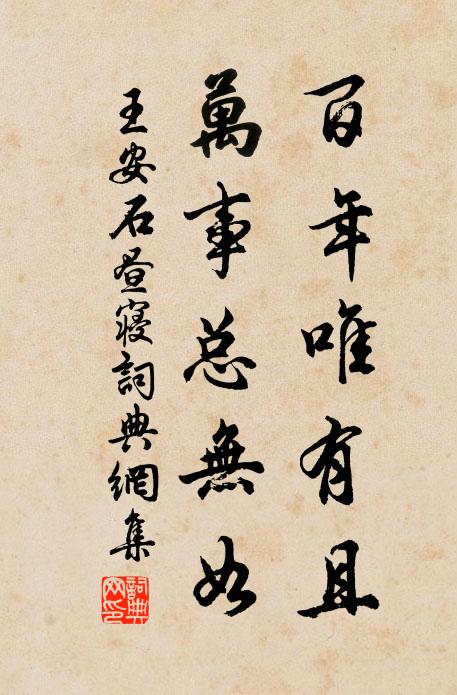 百年唯有且
萬事總無如
王安石晝寢詞典網集
詞典
网印